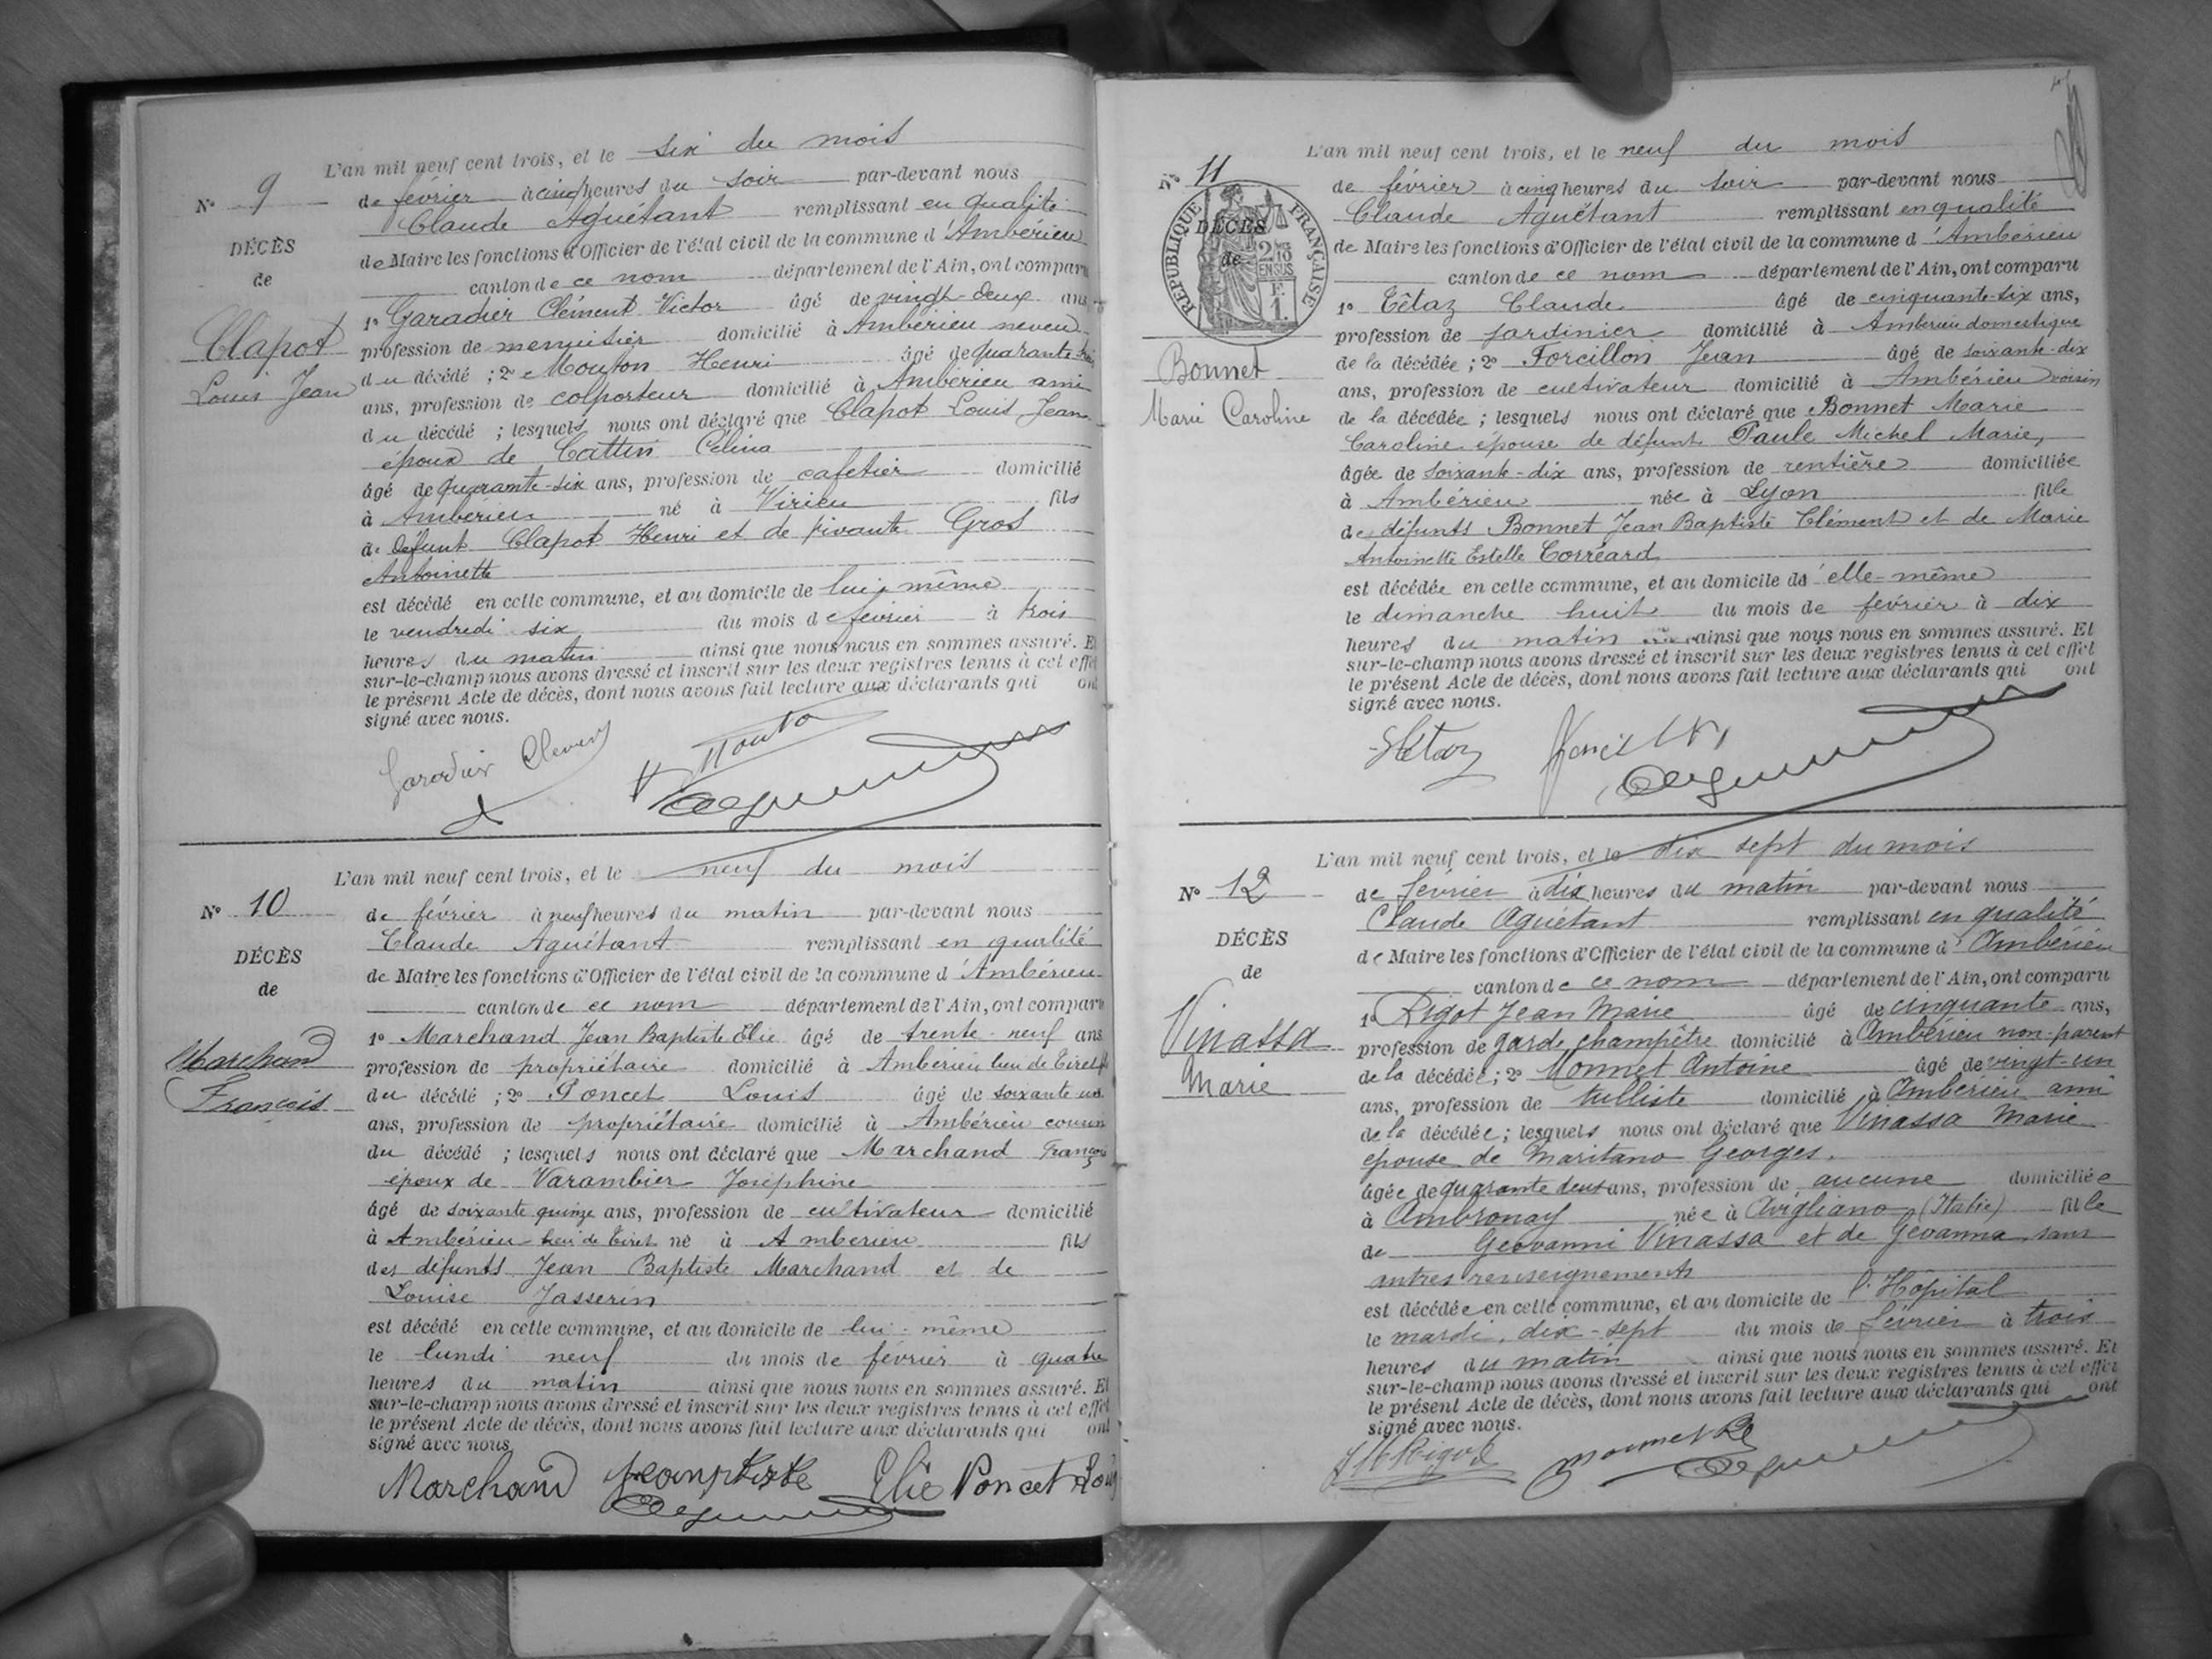 L'an mil neuf cent trois, et le six du mois
N° 9
de février à cinq heures du soir par-devant nous
Claude Aguétant remplissant en qualité
DÉCÈS
de Maire les fonctions d'Officier de l'état civil de la commune d'Ambérieu
de
canton de ce nom département de l'Ain, ont comparu
1° Garadier Clément Victor âgé de vingt-deux ans
Clapot
profession de menuisier domicilié à Ambérieu neveu
Louis Jean
du décédé ; 2° Mouton Henri âgé de quarante-trois
ans, profession de colporteur domicilié à Ambérieu ami
du décédé ; lesquels nous ont déclaré que Clapot Louis Jean
époux de Cattin Célina
âgé de quarante-six ans, profession de cafetier domicilié
à Ambérieu né à Virieu fils
de défunt Clapot Henri et de vivante Gros
Antoinette
est décédé en cette commune, et au domicile de lui-même
le vendredi six du mois de février à trois
heures du matin ainsi que nous nous en sommes assuré. Et
sur-le-champ nous avons dressé et inscrit sur les deux registres tenus à cet effet
le présent Acte de décès, dont nous avons fait lecture aux déclarants qui ont
signé avec nous.
L'an mil neuf cent trois, et le neuf du mois
N° 10
de février à neuf heures du matin par-devant nous
Claude Aguétant remplissant en qualité
DÉCÈS
de Maire les fonctions d'Officier de l'état civil de la commune d'Ambérieu
de
canton de ce nom département de l'Ain, ont comparu
1° Marchand Jean Baptiste Elie âgé de trente-neuf ans
Marchand
profession de propriétaire domicilié à Ambérieu lieu de Tiret fils
François
du décédé ; 2° Poncet Louis âgé de soixante un
ans, profession de propriétaire domicilié à Ambérieu cousin
du décédé ; lesquels nous ont déclaré que Marchand François
époux de Varambier Joséphine
âgé de soixante quinze ans, profession de cultivateur domicilié
à Ambérieu lieu de Tiret né à Ambérieu fils
des défunts Jean Baptiste Marchand et de
Louise Jasserin
est décédé en cette commune, et au domicile de lui-même
le lundi neuf du mois de février à quatre
heures du matin ainsi que nous nous en sommes assuré. Et
sur-le-champ nous avons dressé et inscrit sur les deux registres tenus à cet effet
le présent Acte de décès, dont nous avons fait lecture aux déclarants qui ont
signé avec nous
Marchand Jeanptiste Elie Poncet Louis
L'an mil neuf cent trois, et le neuf du mois
N° 11
de février à cinq heures du soir par-devant nous
RÉPUBLIQUE FRANÇAISE
Claude Aguétant remplissant en qualité
DÉCÈS
de Maire les fonctions d'Officier de l'état civil de la commune d'Ambérieu
de
2/10 EN SUS
F. 1.
canton de ce nom département de l'Ain, ont comparu
1° Tétaz Claude âgé de cinquante-six ans,
profession de jardinier domicilié à Ambérieu domestique
Bonnet
de la décédée ; 2° Forcillon Jean âgé de soixante-dix
ans, profession de cultivateur domicilié à Ambérieu voisin
Marie Caroline
de la décédée ; lesquels nous ont déclaré que Bonnet Marie
Caroline épouse de défunt Paule Michel Marie,
âgée de soixante-dix ans, profession de rentière domiciliée
à Ambérieu née à Lyon fille
des défunts Bonnet Jean Baptiste Clément et de Marie
Antoinette Estelle Corréard
est décédée en cette commune, et au domicile de d'elle-même
le dimanche huit du mois de février à dix
heures du matin ainsi que nous nous en sommes assuré. Et
sur-le-champ nous avons dressé et inscrit sur les deux registres tenus à cet effet
le présent Acte de décès, dont nous avons fait lecture aux déclarants qui ont
signé avec nous.
L'an mil neuf cent trois, et le dix sept du mois
N° 12
de février à dix heures du matin par-devant nous
Claude Aguétant remplissant en qualité
DÉCÈS
de Maire les fonctions d'Officier de l'état civil de la commune d'Ambérieu
de
canton de ce nom département de l'Ain, ont comparu
1° Rigot Jean Marie âgé de cinquante ans,
Vinassa
profession de garde champêtre domicilié à Ambérieu non-parent
Marie
de la décédée ; 2° Monnet Antoine âgé de vingt-un
ans, profession de tulliste domicilié à Ambérieu ami
de la décédée ; lesquels nous ont déclaré que Vinassa Marie
épouse de Maritano Georges.
âgée de quarante deux ans, profession de aucune domiciliée
à Ambronay née à Avigliano (Italie) fille
de Geovanni Vinassa et de Geovanna sans
autres renseignements
est décédée en cette commune, et au domicile de l'Hôpital
le mardi, dix-sept du mois de février à trois
heures du matin ainsi que nous nous en sommes assuré. Et
sur-le-champ nous avons dressé et inscrit sur les deux registres tenus à cet effet
le présent Acte de décès, dont nous avons fait lecture aux déclarants qui ont
signé avec nous.